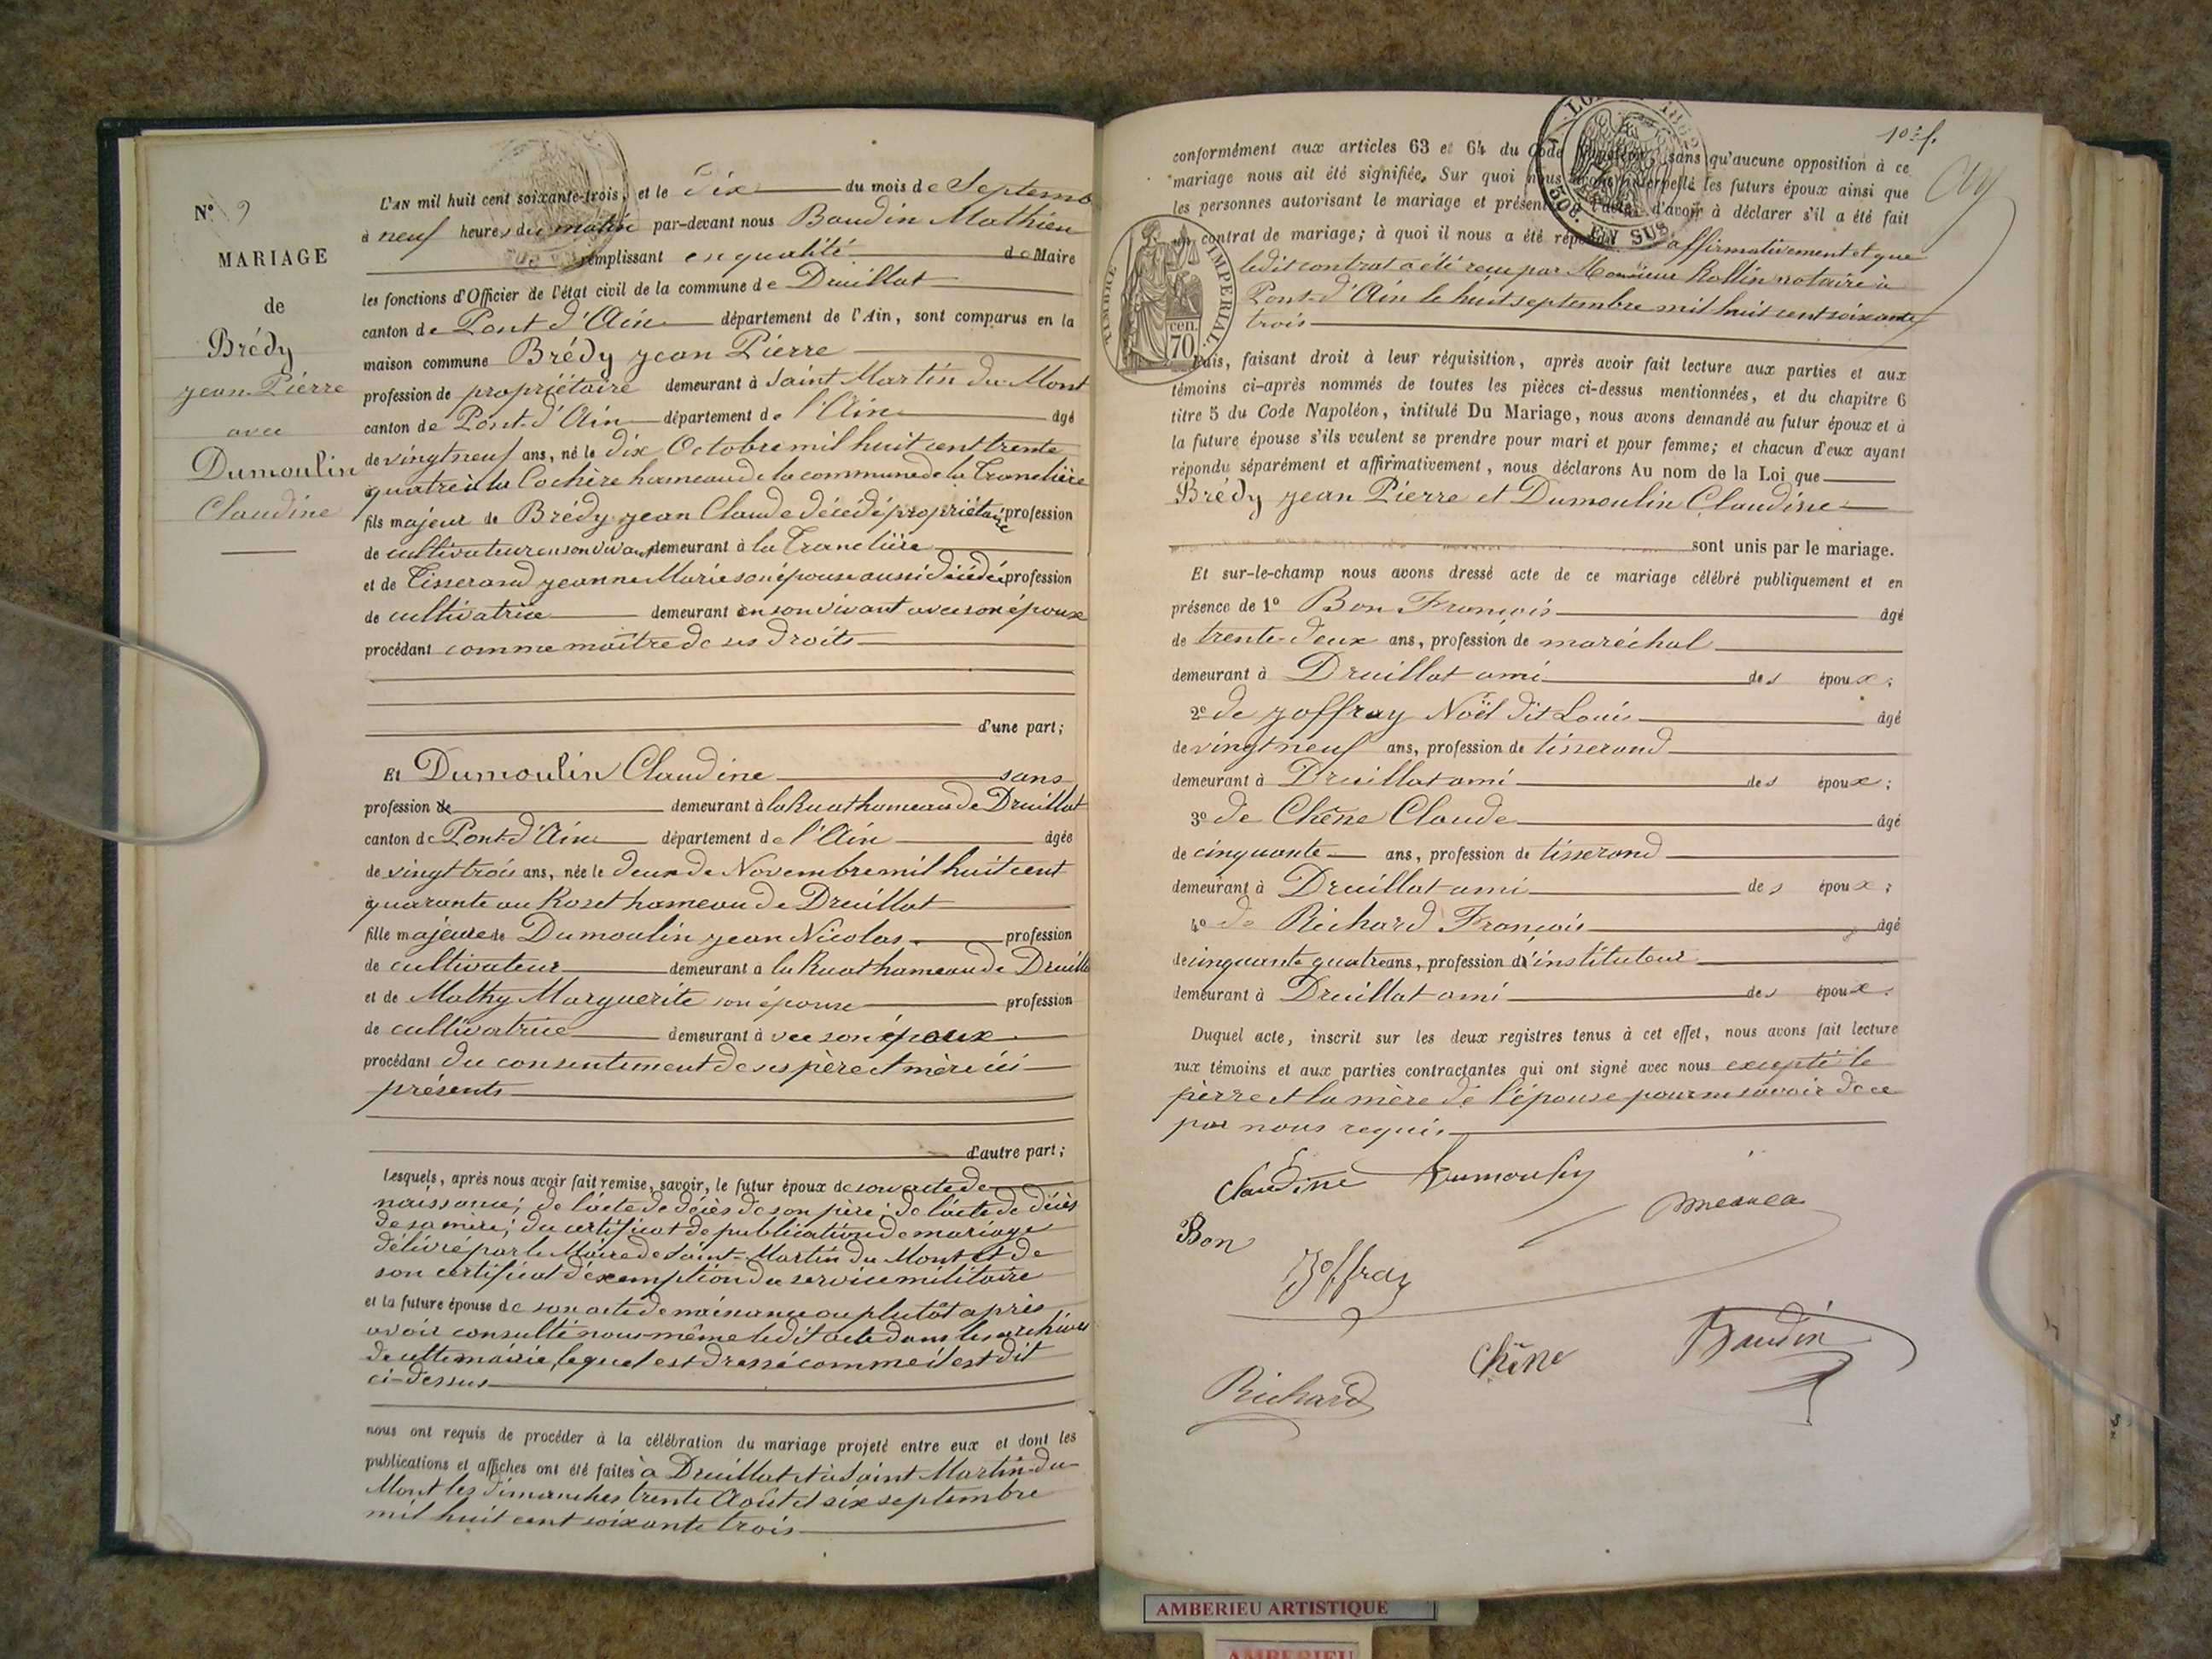 N° 9
MARIAGE
de
Brédy
jean Pierre
avec
Dumoulin
Claudine
L'AN mil huit cent soixante-trois, et le dix du mois de Septemb
à neuf heures du matin par-devant nous Baudin Mathieu
remplissant en qualité de Maire
les fonctions d'Officier de l'état civil de la commune de Druillat
canton de Pont d'Ain département de l'Ain, sont comparus en la
maison commune Brédy jean Pierre
profession de propriétaire demeurant à Saint Martin du Mont
canton de Pont-d'Ain département de l'Ain âgé
de vingt neuf ans, né le dix Octobre mil huit cent trente
quatre à la Cochère hameau de la commune de la Tranclière
fils majeur de Brédy jean Claude décédé propriétaire profession
de cultivateur en son vivant demeurant à la Tranclière
et de Tisserand jeanne Marie son épouse aussi décédée profession
de cultivatrice demeurant en son vivant avec son époux
procédant comme maître de ses droits
d'une part;
Et Dumoulin Claudine sans
profession de demeurant à la Ruat hameau de Druillat
canton de Pont-d'Ain département de l'Ain âgée
de vingt trois ans, née le deux de Novembre mil huit cent
quarante au Roset hameau de Druillat
fille majeure de Dumoulin jean Nicolas profession
de cultivateur demeurant à la Ruat hameau de Druilla
et de Mathy Marguerite son épouse profession
de cultivatrice demeurant à vec son époux
procédant du consentement de ses père et mère ici
présents
d'autre part;
Lesquels, après nous avoir fait remise, savoir, le futur époux de son acte de
naissance; de l'acte de décès de son père; de l'acte de décès
de sa mère; du certificat de publication de mariage
délivré par le Maire de Saint-Martin du Mont et de
son certificat d'exemption du service militaire
et la future épouse de son acte de naissance ou plutôt après
avoir consulté nous-même ledit acte dans les archives
de cette mairie, lequel est dressé comme il est dit
ci-dessus
nous ont requis de procéder à la célébration du mariage projeté entre eux et dont les
publications et affiches ont été faites à Druillat et à Saint Martin-du
Mont les dimanches trente Août et six septembre
mil huit cent soixante trois
conformément aux articles 63 et 64 du Code Napoléon, sans qu'aucune opposition à ce
mariage nous ait été signifiée. Sur quoi nous avons interpellé les futurs époux ainsi que
les personnes autorisant le mariage et présentes à l'acte, d'avoir à déclarer s'il a été fait
un contrat de mariage; à quoi il nous a été répondu affirmativement et que
ledit contrat a été reçu par Monsieur Rollin notaire à
Pont-d'Ain le huit septembre mil huit cent soixante
trois
TIMBRE IMPERIAL
cen.
70
EN SUS
Puis, faisant droit à leur réquisition, après avoir fait lecture aux parties et aux
témoins ci-après nommés de toutes les pièces ci-dessus mentionnées, et du chapitre 6
titre 5 du Code Napoléon, intitulé Du Mariage, nous avons demandé au futur époux et à
la future épouse s'ils veulent se prendre pour mari et pour femme; et chacun d'eux ayant
répondu séparément et affirmativement, nous déclarons Au nom de la Loi que
Brédy jean Pierre et Dumoulin Claudine
sont unis par le mariage.
Et sur-le-champ nous avons dressé acte de ce mariage célébré publiquement et en
présence de 1° Bon François âgé
de trente-deux ans, profession de maréchal
demeurant à Druillat ami des époux;
2° de joffray Noël dit Louis âgé
de vingt neuf ans, profession de tisserand
demeurant à Druillat ami des époux;
3° de Chêne Claude âgé
de cinquante ans, profession de tisserand
demeurant à Druillat ami des époux;
4° de Richard François âgé
de cinquante quatre ans, profession d'instituteur
demeurant à Druillat ami des époux.
Duquel acte, inscrit sur les deux registres tenus à cet effet, nous avons fait lecture
aux témoins et aux parties contractantes qui ont signé avec nous excepté le
père et la mère de l'épouse pour ne savoir de ce
par nous requis
Claudine Dumoulin
Bon
Joffray
Chêne
Baudin
Richard
AMBERIEU ARTISTIQUE
AMBERIEU